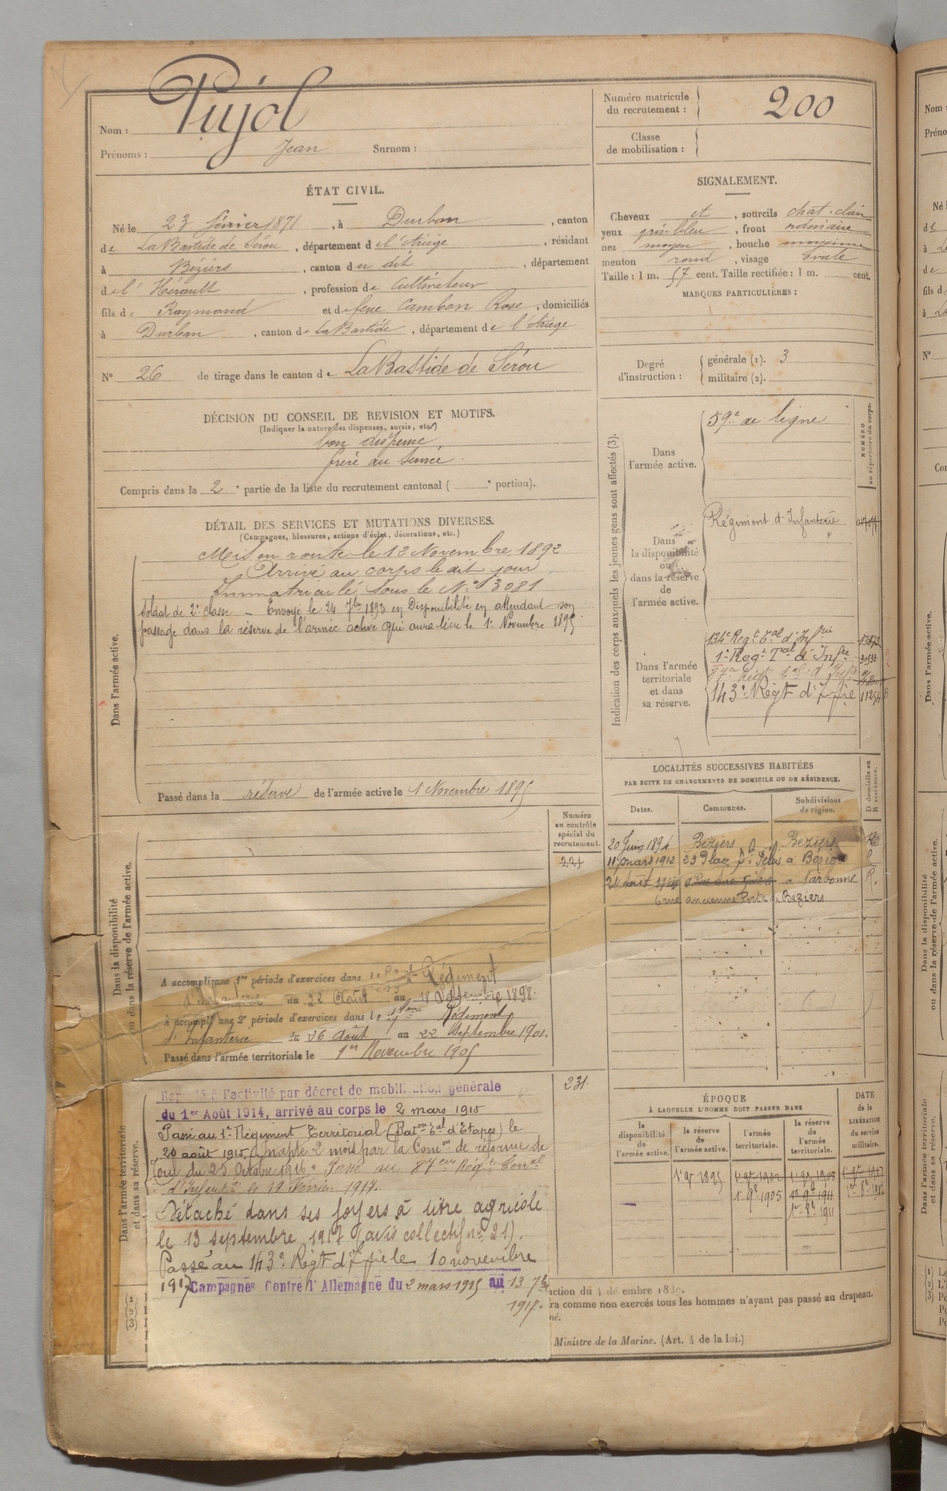 Nom : Pujol
Prénoms : Jean Surnom :
Numéro matricule
du recrutement : 200
Classe
de mobilisation :
ÉTAT CIVIL.
Né le 23 février 1871, à Durban, canton
de LaBastide de Sérou, département de l'Ariège, résidant
à Béziers, canton du dit, département
de l'Hérault, profession de Cultivateur
fils de Raymond et de feue Cambon Rose, domiciliés
à Durban, canton de LaBastide, département de l'Ariège
N° 26 de tirage dans le canton de LaBastide de Sérou
SIGNALEMENT.
Cheveux et, sourcils chat. clair
yeux gris bleu, front ordinaire
nez moyen, bouche moyenne
menton rond, visage ovale
Taille : 1 m. 57 cent. Taille rectifiée : 1 m. cent.
MARQUES PARTICULIÈRES :
Degré
d'instruction :
générale (1). 3
militaire (2).
DÉCISION DU CONSEIL DE REVISION ET MOTIFS.
(Indiquer la nature des dispenses, sursis, etc.)
bon dispensé
frère au service
Compris dans la 2e partie de la liste du recrutement cantonal ( e portion).
DÉTAIL DES SERVICES ET MUTATIONS DIVERSES.
(Campagnes, blessures, actions d'éclat, décorations, etc.)
Dans l'armée active.
Mis en route le 12 Novembre 1892
Arrivé au corps le dit jour
Immatriculé sous le N° 3081
Soldat de 2e classe _ Envoyé le 24 7bre 1893 en Disponibilité en attendant son
passage dans la réserve de l'armée active qui aura lieu le 1er Novembre 1895
Passé dans la réserve de l'armée active le 1 Novembre 1895
Indication des corps auxquels les jeunes gens sont affectés (3).
NUMÉRO
au répertoire du corps.
Dans
l'armée active.
59e de ligne
Dans
la disponibilité
ou
dans la réserve
de
l'armée active.
Régiment d'Infanterie
Dans l'armée
territoriale
et dans
sa réserve.
134e Regt Tal d'Infrie
1er Regt Tal d'Infie
143e Régt d'Iffie
LOCALITÉS SUCCESSIVES HABITÉES
PAR SUITE DE CHANGEMENTS DE DOMICILE OU DE RÉSIDENCE.
Dates. Communes. Subdivisions
de région.
20 Juin 1894 Béziers Béziers
11 mars 1912 23 Place à Béziers
à Narbonne R.
6 rue ancienne Poste Béziers
Dans la disponibilité
ou dans la réserve de l'armée active.
Numéro
au contrôle
spécial du
recrutement.
221
A accompli une 1re période d'exercices dans le Régiment
d'Infanterie du 22 Août au 18 Septembre 1898.
à accompli une 2e période d'exercices dans le Régiment
d'Infanterie du 26 Août au 22 Septembre 1901.
Passé dans l'armée territoriale le 1er Novembre 1905
231
Dans l'armée territoriale
et dans sa réserve.
Rappelé à l'activité par décret de mobilisation générale
du 1er Août 1914, arrivé au corps le 2 mars 1915
Passé au 1er Régiment Territorial (Baton Tal d'Etapes) le
20 août 1915. Inapte 2 mois par la Comon de réforme de
Toul du 25 Octobre 1916. Passé au 87eme Régt Territal
d'Infantie le 19 Février 1917.
Détaché dans ses foyers à titre agricole
le 13 septembre 1917 (avis collectif n° 21).
Passé au 143e Régt d'Iffie le 10 novembre
1917 Campagnes contre l'Allemagne du 2 mars 1915 au 13 7bre
1917.
ÉPOQUE
À LAQUELLE L'HOMME DOIT PASSER DANS
la
disponibilité
de
l'armée active.
la réserve
de
l'armée active.
l'armée
territoriale.
la réserve
de
l'armée
territoriale.
DATE
de la
LIBÉRATION
du service
militaire.
1er 9bre 1895
1er 9bre 1905
1er 8bre 1911
ction du 4 décembre 1889.
ra comme non exercés tous les hommes n'ayant pas passé au drapeau.
né.
Ministre de la Marine. (Art. 4 de la loi.)
(1)
(2)
(3)